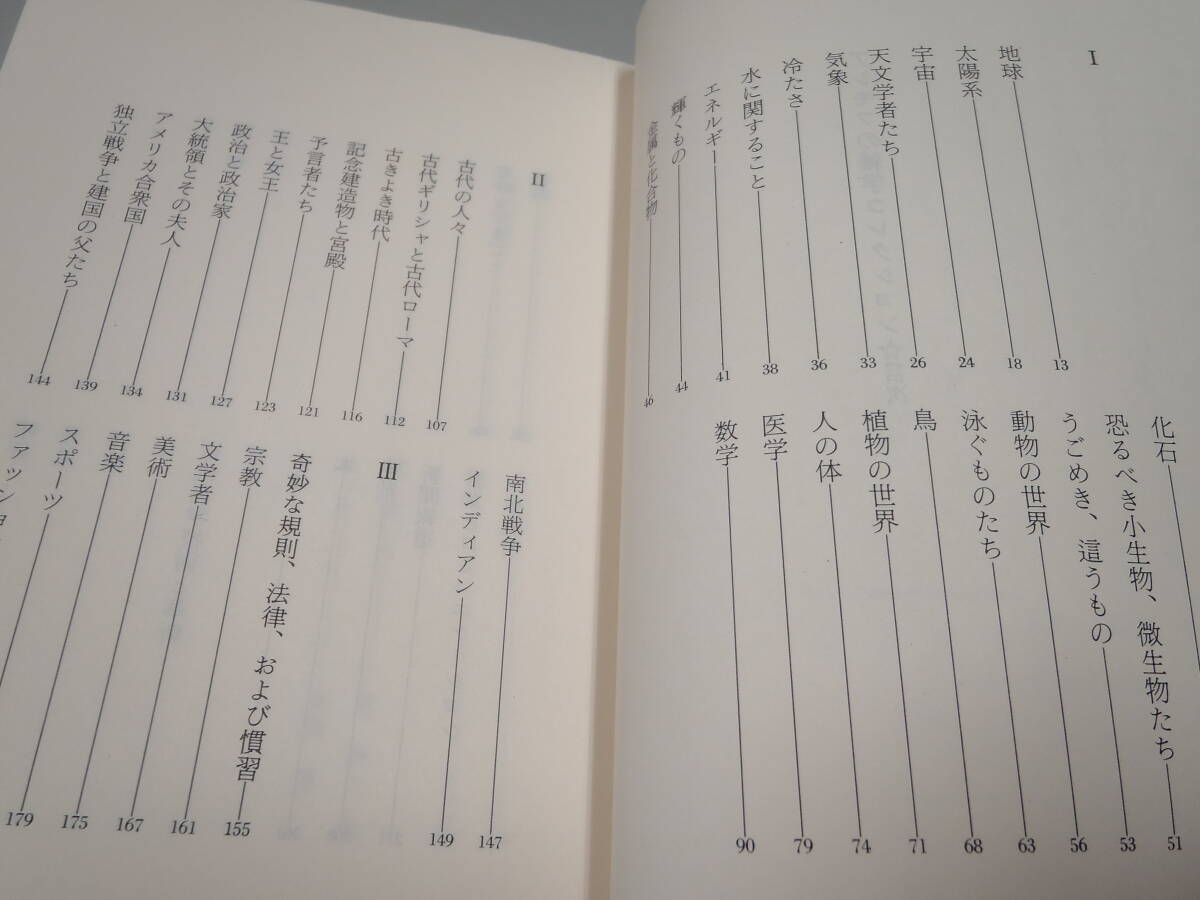 I
地球 13
太陽系 18
宇宙 24
天文学者たち 26
気象 33
冷たさ 36
水に関すること 38
エネルギー 41
輝くもの 44
金属と化合物 46
化石
恐るべき小生物、微生物たち 51
うごめき、這うもの 53
動物の世界 56
泳ぐものたち 63
鳥 68
植物の世界 71
人の体 74
医学 79
数学 90
II
古代の人々 107
古代ギリシャと古代ローマ 112
古きよき時代 116
記念建造物と宮殿 121
予言者たち 123
王と女王 127
政治と政治家 131
大統領とその夫人 134
アメリカ合衆国 139
独立戦争と建国の父たち 144
南北戦争 147
インディアン 149
III
奇妙な規則、法律、および慣習 155
宗教 161
文学者 167
美術 175
音楽 179
スポーツ
ファッショ